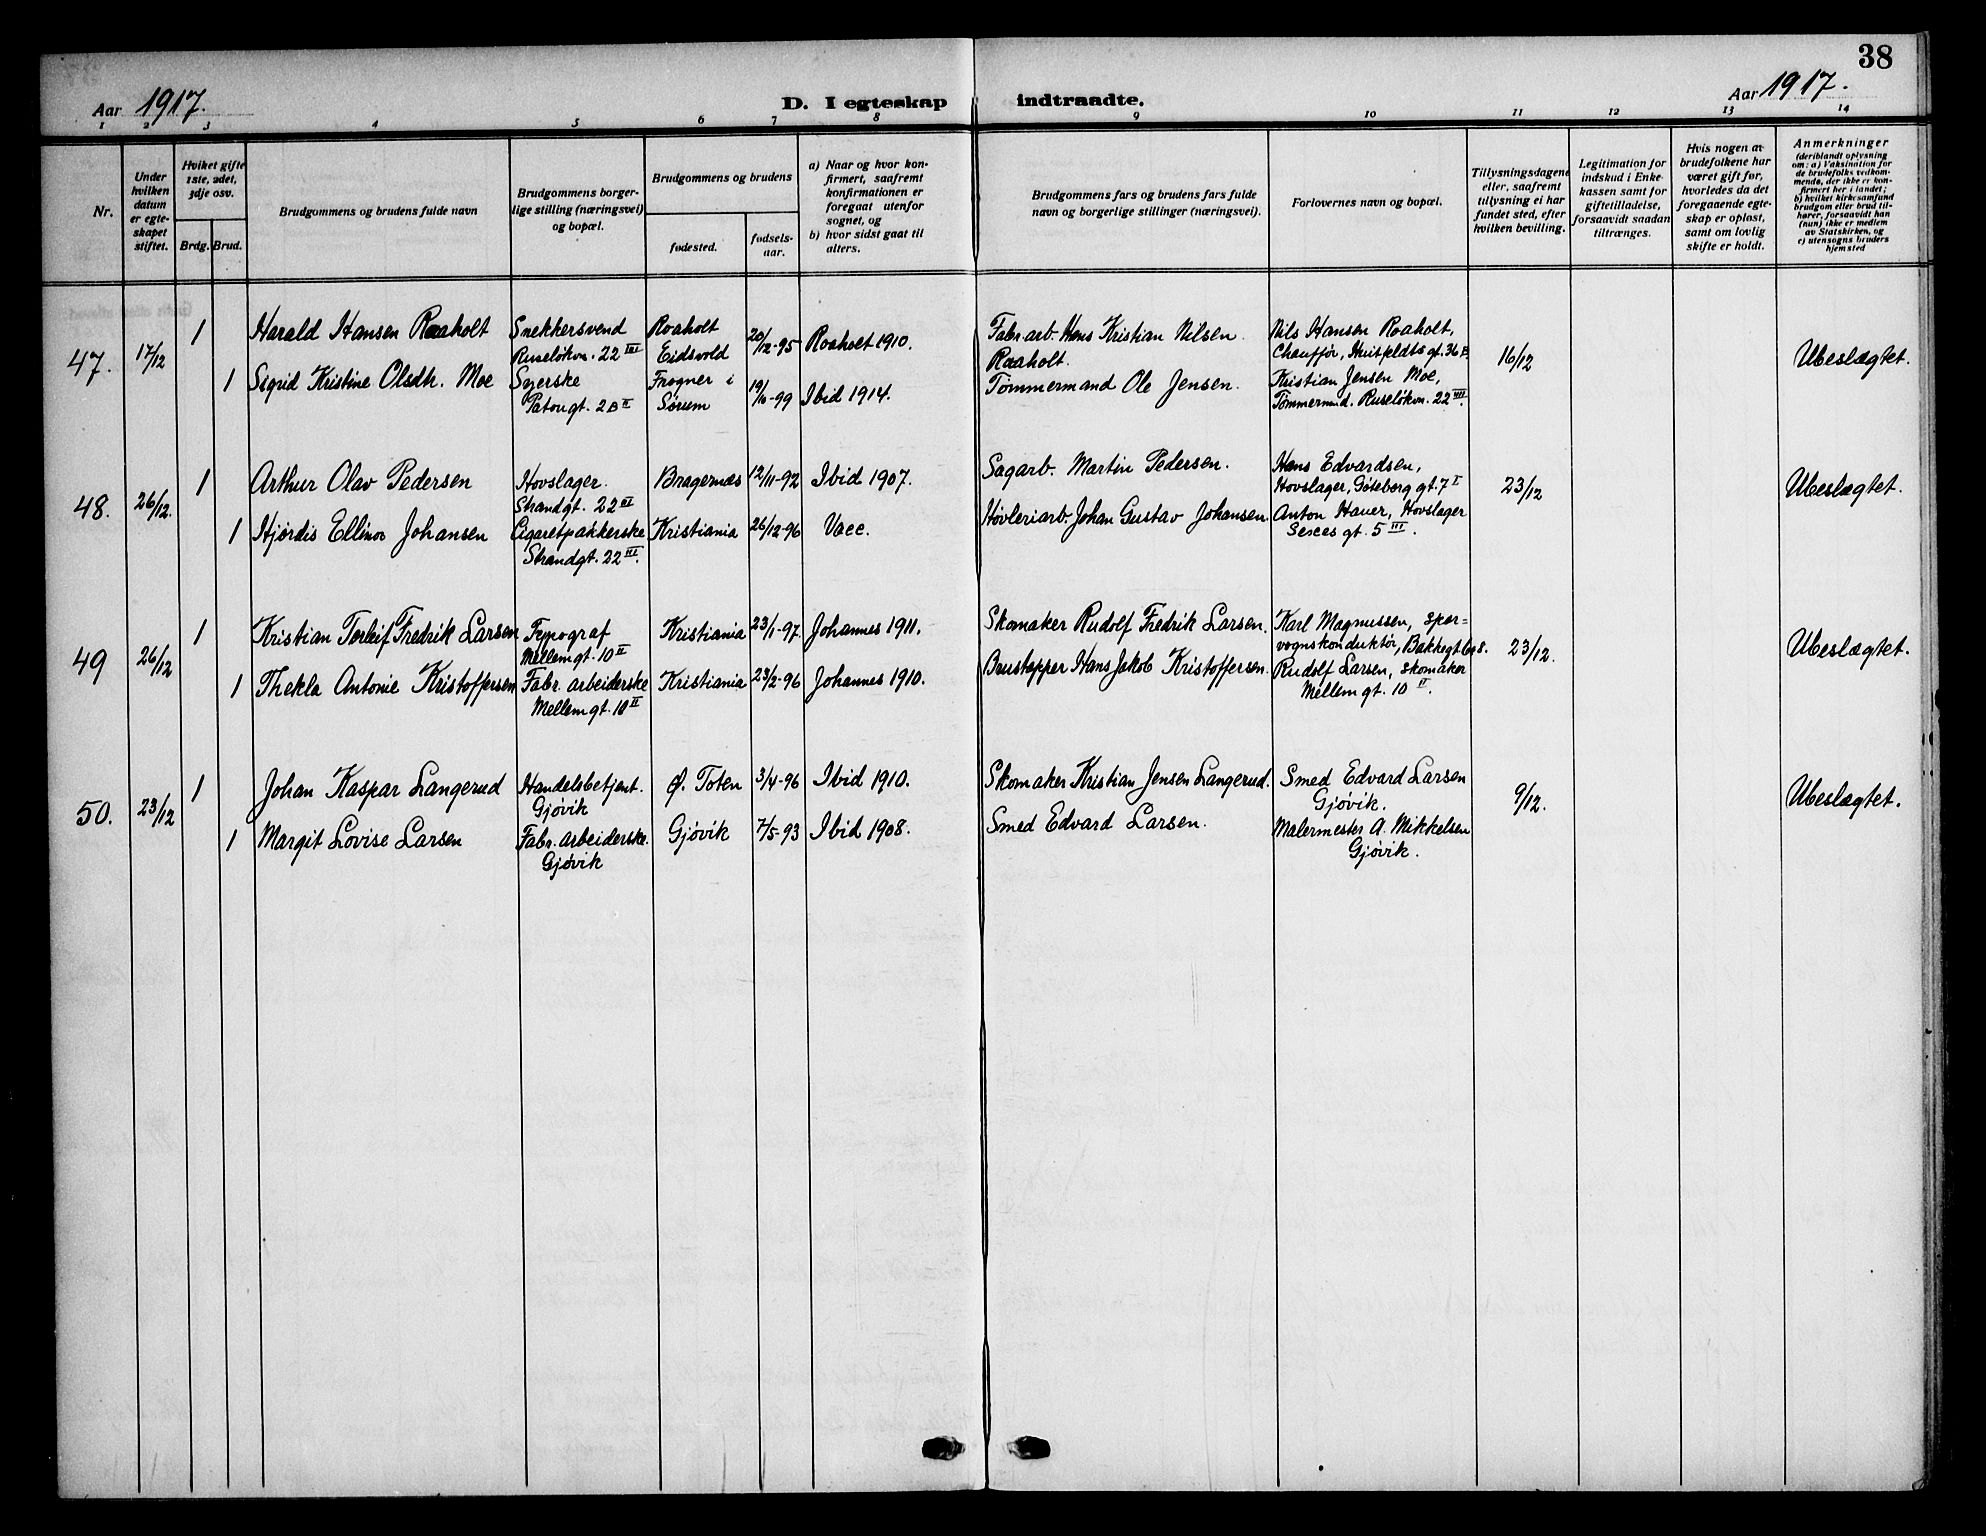 38
Aar 1917.
D. I egteskap indtraadte.
Aar 1917.
1 2 3 4 5 6 7 8 9 10 11 12 13 14
Nr.
Under
hvilken
datum
er egte-
skapet
stiftet.
Hvilket gifte
1ste, 2det,
3dje osv.
Brdg. Brud.
Brudgommens og brudens fulde navn
Brudgommens borger-
lige stilling (næringsvei)
og bopæl.
Brudgommens og brudens
fødested.
fødsels-
aar.
a) Naar og hvor kon-
firmert, saafremt
konfirmationen er
foregaat utenfor
sognet, og
b) hvor sidst gaat til
alters.
Brudgommens fars og brudens fars fulde
navn og borgerlige stillinger (næringsvei).
Forlovernes navn og bopæl.
Tillysningsdagene
eller, saafremt
tillysning ei har
fundet sted, efter
hvilken bevilling.
Legitimation for
indskud i Enke-
kassen samt for
giftetilladelse,
forsaavidt saadan
tiltrænges.
Hvis nogen av
brudefolkene har
været gift før,
hvorledes da det
foregaaende egte-
skap er opløst,
samt om lovlig
skifte er holdt.
Anmerkninger
(deriblandt oplysning
om: a) Vaksination for
de brudefolks vedkom-
mende, der ikke er kon-
firmert her i landet;
b) hvilket kirkesamfund
brudgom eller brud til-
hører, forsaavidt han
(hun) ikke er medlem
av Statskirken, og
c) utensogns bruders
hjemsted
47. 17/12
1 Harald Hansen Raaholt
Snekkersvend
Ruseløkvn. 22 III
Raaholt
Eidsvold
20/12-95
Raaholt 1910.
Fabr.arb. Hans Kristian Nilsen
Raaholt.
Nils Hansen Raaholt,
Chauffør, Huitfeldts gt. 36 B
16/12
Ubeslægtet.
1 Sigrid Kristine Olsdh. Moe
Syerske
Frogner i
Sørum
Ibid 1914.
Tømmermand Ole Jensen.
Kristian Jensen Moe,
Tømmermd. Ruseløkvn. 22 III.
48. 26/12.
1 Arthur Olav Pedersen
Hovslager.
Strandgt. 22 III
Bragernæs
12/11-92
Ibid 1907.
Sagarb. Martin Pedersen.
Hans Edvardsen,
Hovslager, Gøteborg gt. 7 I
23/12
Ubeslægtet.
1 Hjørdis Ellinor Johansen
Cigaretpakkerske
Strandgt. 22 III.
Kristiania
26/12-96
Vacc.
Høvleriarb. Johan Gustav Johansen.
Anton Hauer, Hovslager
gt. 5 III.
49 26/12
1 Kristian Torleif Fredrik Larsen
Typograf
Mellemgt. 10 II
Kristiania
23/1-97.
Johannes 1911.
Skomaker Rudolf Fredrik Larsen.
Karl Magnussen, spor-
vognskonduktør,
23/12.
Ubeslægtet.
1 Thekla Antonie Kristoffersen
Fabr. arbeiderske
Mellemgt. 10 II
Kristiania
23/2-96
Johannes 1910.
Brustapper Hans Jakob Kristoffersen.
Rudolf Larsen, skomaker
Mellemgt. 10 II.
50. 23/12
1 Johan Kaspar Langerud
Handelsbetjent.
Gjøvik
Ø. Toten
3/4-96
Ibid 1910.
Skomaker Kristian Jensen Langerud.
Smed Edvard Larsen
Gjøvik.
9/12.
Ubeslægtet.
1 Margit Lovise Larsen
Fabr. arbeiderske.
Gjøvik
Gjøvik
7/5-93
Ibid 1908.
Smed Edvard Larsen.
Malermester A. Mikkelsen
Gjøvik.